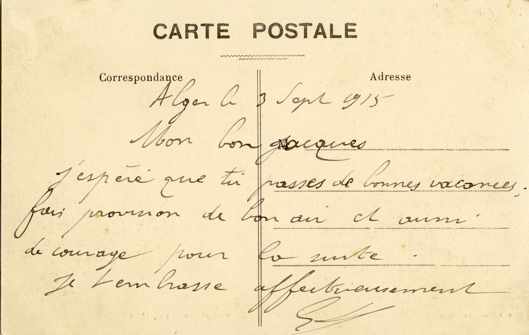 CARTE POSTALE
Correspondance
Adresse
Alger le 3 Sept 1915
Mon bon Jacques
j'espère que tu passes de bonnes vacances,
fais provision de bon air et aussi
de courage pour la suite.
Je t'embrasse affectueusement